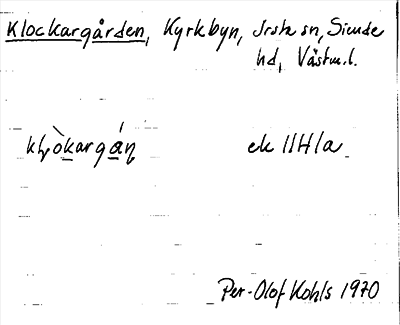 Klockargården, Kyrkbyn, Irsta sn, Siende
hd, Västm.l.
ek 11H1a
Per-Olof Kohls 1970